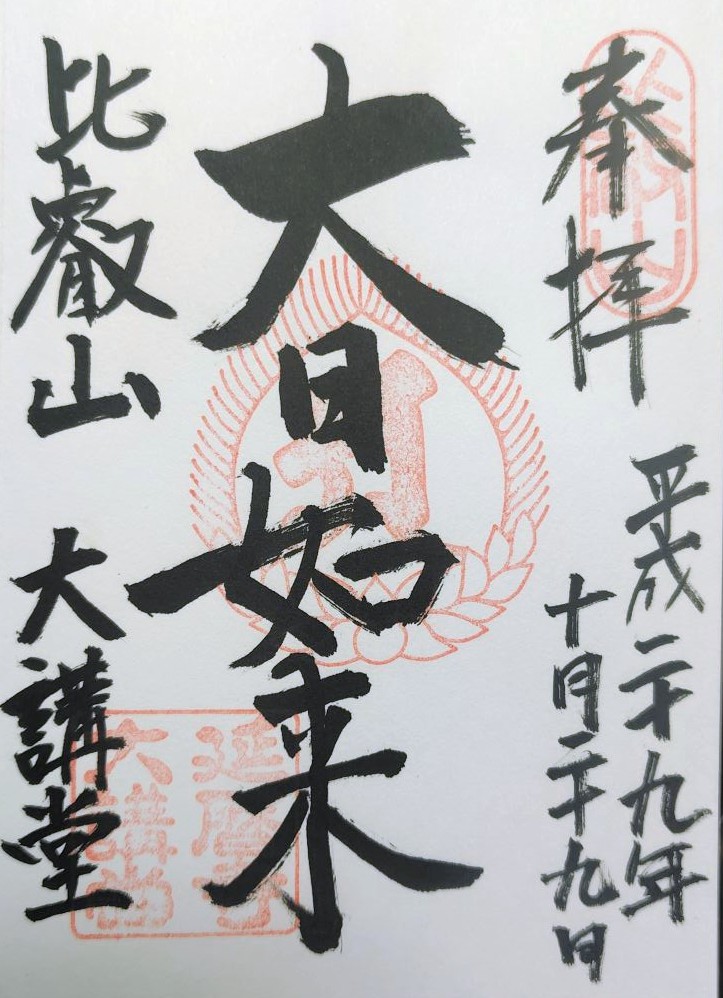 奉拝
平成二十九年
十月二十九日
大日如来
比叡山 大講堂
延暦寺
大講堂